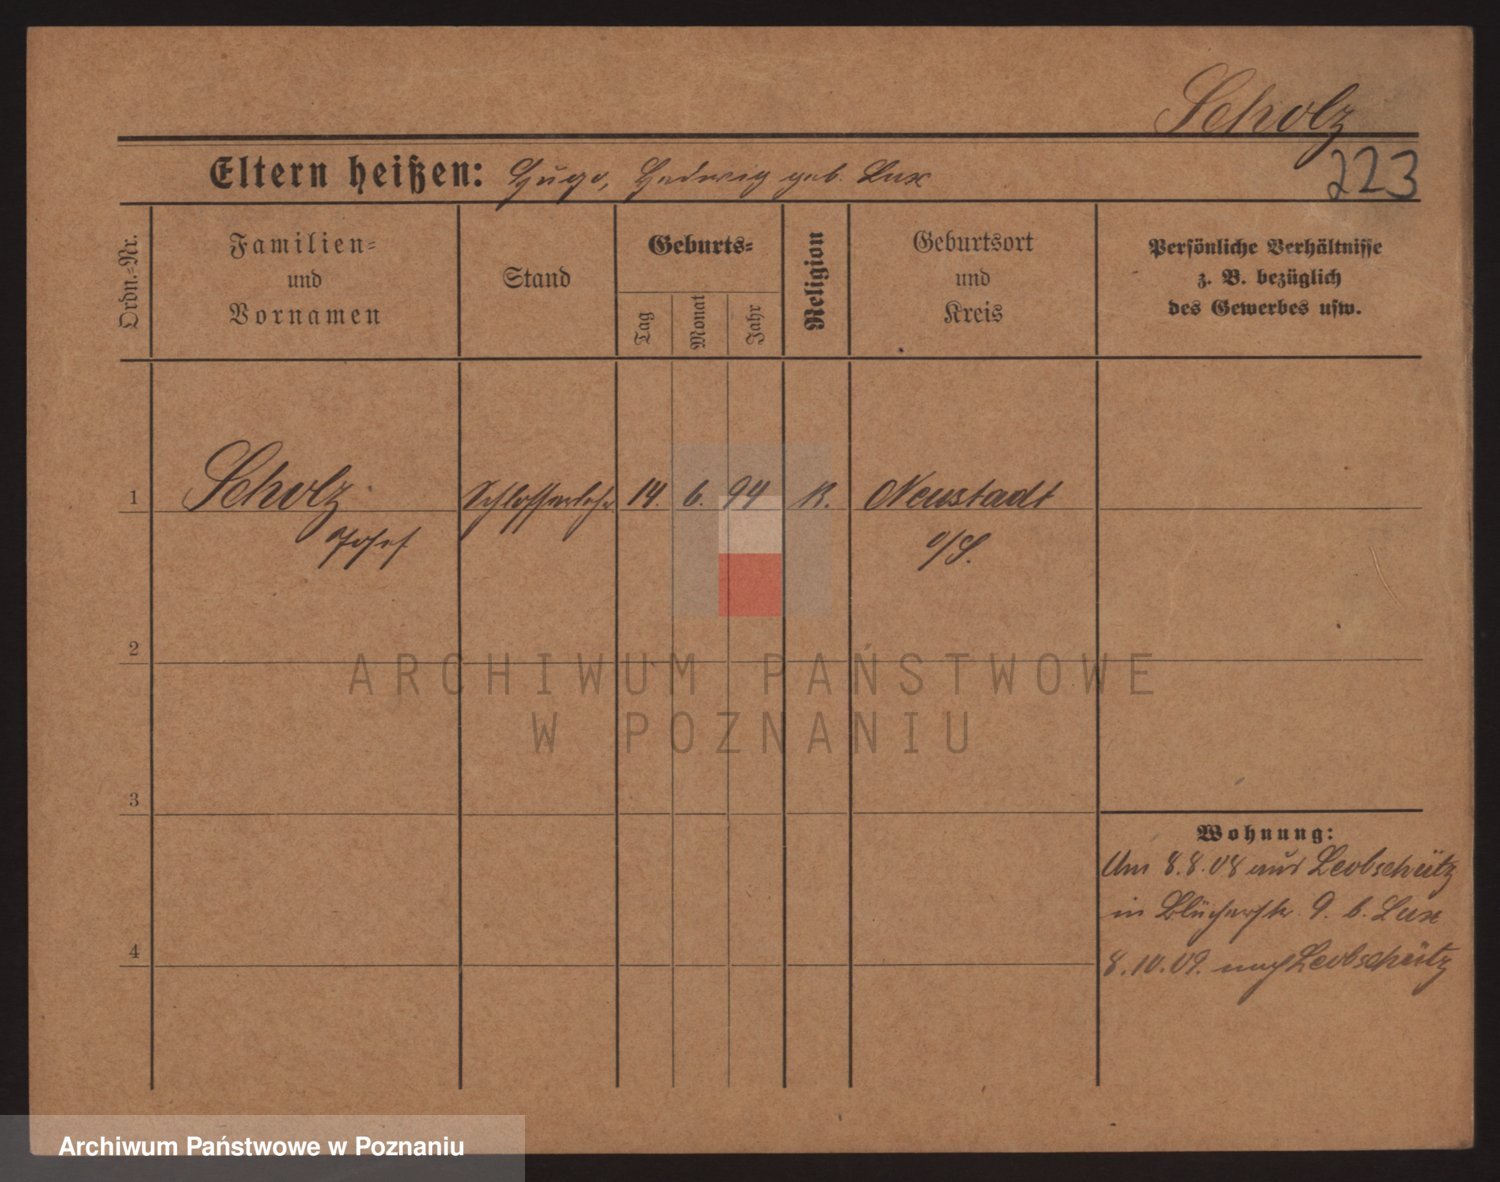 Scholz
Eltern heißen: Hugo, Hedwig geb. Lux
223
Ordn.=Nr.
Familien=
und
Vornamen
Stand
Geburts=
Tag
Monat
Jahr
Religion
Geburtsort
und
Kreis
Persönliche Verhältnisse
z. B. bezüglich
des Gewerbes usw.
1 Scholz Schlosserlehr 14. 6. 94 K. Neustadt
Josef o/S.
2
ARCHIWUM PAŃSTWOWE
W POZNANIU
3
Wohnung:
Am 8.8.08 aus Leobschütz
in Blücherstr. 9. b. Lux
4
8.10.09. nach Leobschütz
Archiwum Państwowe w Poznaniu